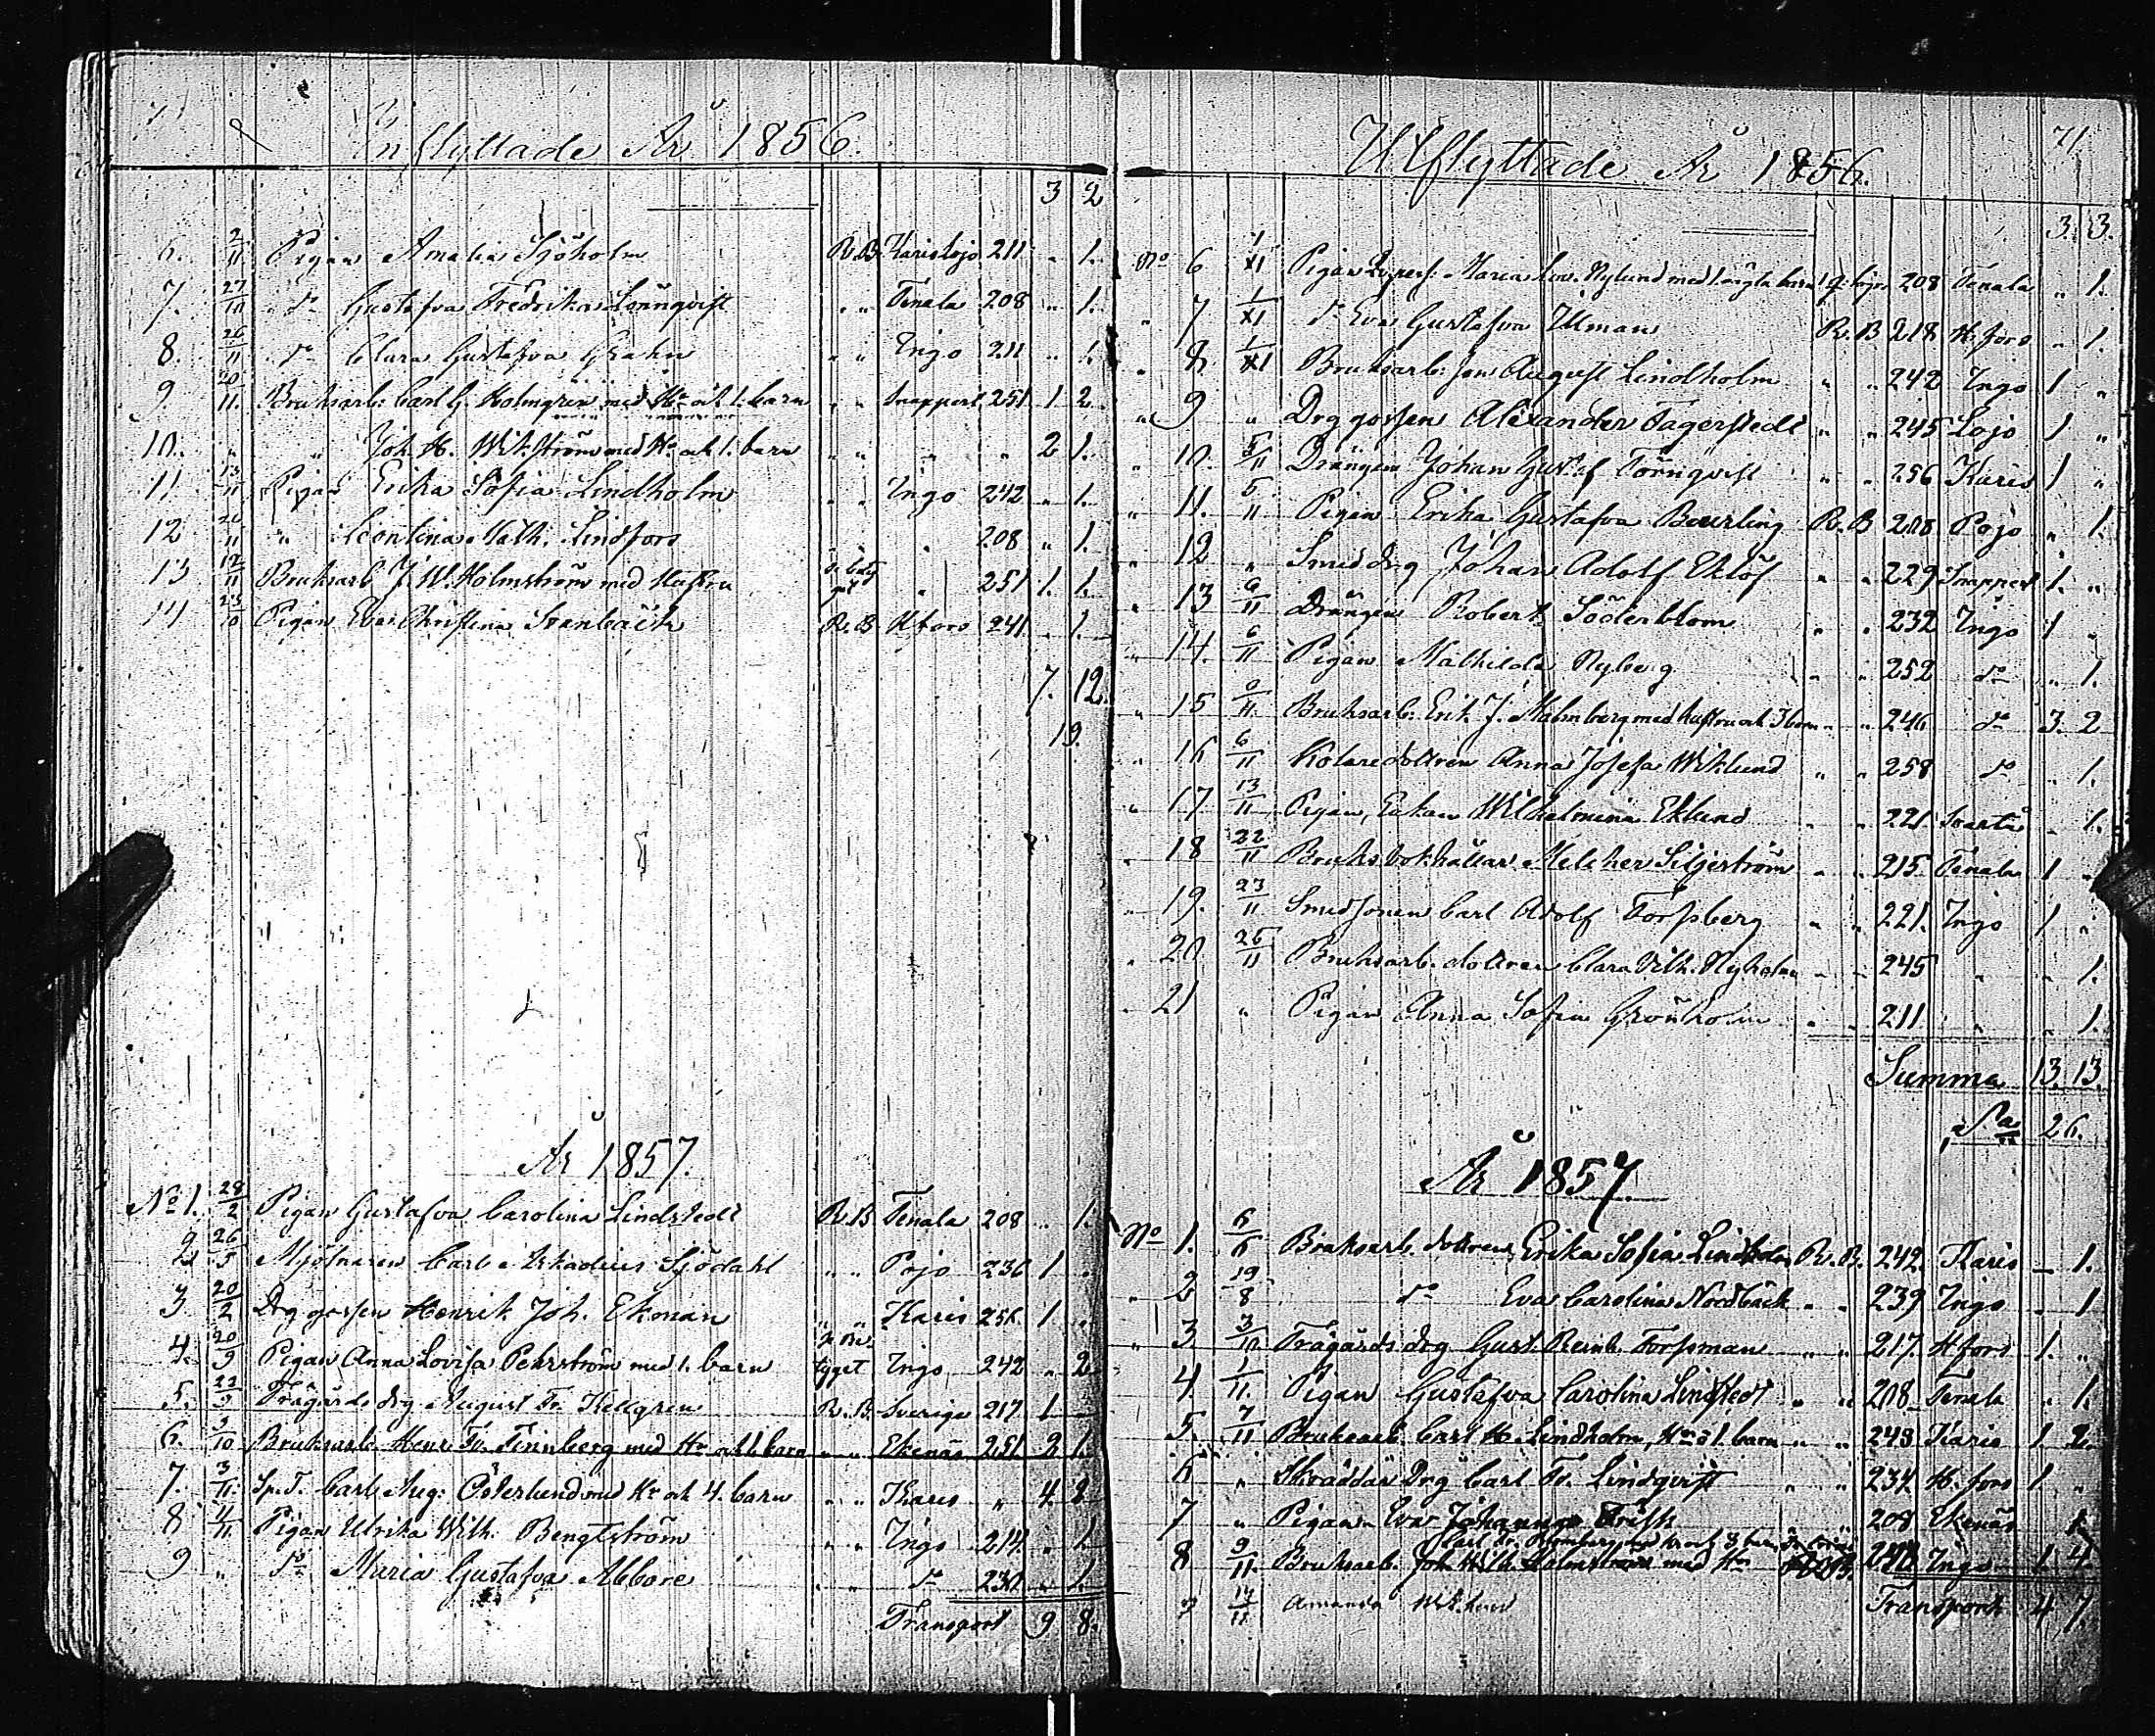 Inflyttade År 1856.
3 2
6. 2/11 Pigan Amalia Sjöholm R.B. Karislojo 211 " 1.
7. 27/11 do Gustafva Fredrika Lönnqvist " " Tenala 208 " 1.
8. 26/11 do Clara Gustafva Grahn " " Ingo 211 " 1.
9. 20/11. Bruksarb: Carl G. Holmgren med Hu och 1. barn " " Snappert 251 1 2
10. " " Joh. H. Wikström med Hu och 1. barn " " " " 2 1.
11 13/11 Pigan Erika Sofia Lindholm " " Ingo 242 " 1.
12 26/11 " Leontina Math. Lindfors " " " 208 " 1.
13 12/11 Bruksarb J. W. Holmström med Hustru " 251 1. 1.
14 23/10 Pigan Eva Christina Stenbäck R.B. Hfors 241 " 1.
7. 12.
19.
År 1857.
No 1. 28/2 Pigan Gustafva Carolina Lindstedt R.B. Tenala 208 " 1.
2 26/5 Mjölnaren Carl Arkadius Sjödahl " " Pojo 236 1 "
3 20/2 Drg gossen Henrik Joh. Ekman " " Karis 256 1 "
4. 20/9 Pigan Anna Lovisa Pehrström med 1. barn Ingo 242 " 2
5. 22/9 Trägårds drg August Fr. Kellgren R.B. Sverige 217 1
6. 3/10 Bruksarb. Henr. Fr. Finnberg med Hu och 1 barn " " Ekenäs 251 2 1.
7. 3/11. Sp. T. Carl Aug: Österlund med Hu och 4. barn " " Karis " 4 2
8 4/11 Pigan Ulrika Wilh. Bengtström " " Ingo 214 " 1
9 " do Maria Gustafva Abbore " " do 230 " 1.
Transport 9 8.
71
Utflyttade År 1856.
3. 3.
No 6 1/XI Pigan Maria Lov. Nylund med 1. oägta barn 208 Tenala " 1.
" 7 1/XI do Eva Gustafva Illman R.B 218 H.fors " 1.
" 8 1/XI Bruksarb: son August Lindholm " " 242 Ingo 1 "
" 9 " Drg gossen Alexander Fagerstedt " " 245 Lojo 1 "
" 10. 5/11 Drängen Johan Gustaf Törnqvist " " 256 Karis 1 "
" 11. 5/11 Pigan Erika Gustafva Beurling R.B 208 Pojo " 1.
" 12 " Smid drg Johan Adolf Eklöf " " 229 Snappert 1. "
" 13 6/11 Drängen Robert Söderblom " " 232 Ingo 1 "
" 14. 6/11 Pigan Mathilda Nyberg " " 252 do " 1.
" 15 6/11. Bruksarb: Erik J. Malmberg med hustru och 3 barn " " 246 do 3. 2
" 16 6/11 Kolaredottren Anna Josefa Wiklund " " 258 do " 1.
" 17 13/11 Pigan, Enkan Wilhelmina Eklund " " 221 Svartå " 1.
" 18 22/11 Bruks bokhållar Melcher Siljeström " " 215. Tenala 1 "
" 19. 23/11 Smedsonen Carl Adolf Forssberg " " 221. Ingo 1 "
" 20 25/11 Bruksarb. dottren Clara Vilh. Nyholm " " 245 " " 1.
" 21 " Pigan Anna Sofia Grönholm " " 211 " " 1.
Summa 13. 13.
Sa 26.
År 1857.
No 1. 6/6 Bruksarb. dottren Erika Sofia Lindholm R.B. 242. Karis " 1.
" 2 19/8 do Eva Carolina Nordbäck " " 239 Ingo " 1
" 3. 3/10 Trägårds drg Gust. Reinh. Forssman " " 217. Hfors 1. "
4. 1/11. Pigan Gustafva Carolina Lindstedt " " 208 Tenala " 1.
5. 7/11 Bruksarb. Carl H. Lindholm, Hu o 1. barn " " 243 Karis 1. 2.
6 " Skräddar Drg Carl Fr. Lindqvist " " 234 H.fors 1 "
7 " Pigan Eva Johanna Frisk 208 Ekenäs 1
Carl Fr. med Hu och 3 barn
8 9/11. Bruksarb. Joh. Wilh. Holmström med Hu Ingo 1. 4.
9 14/11 Amanda Wiklund Transport 4 7.